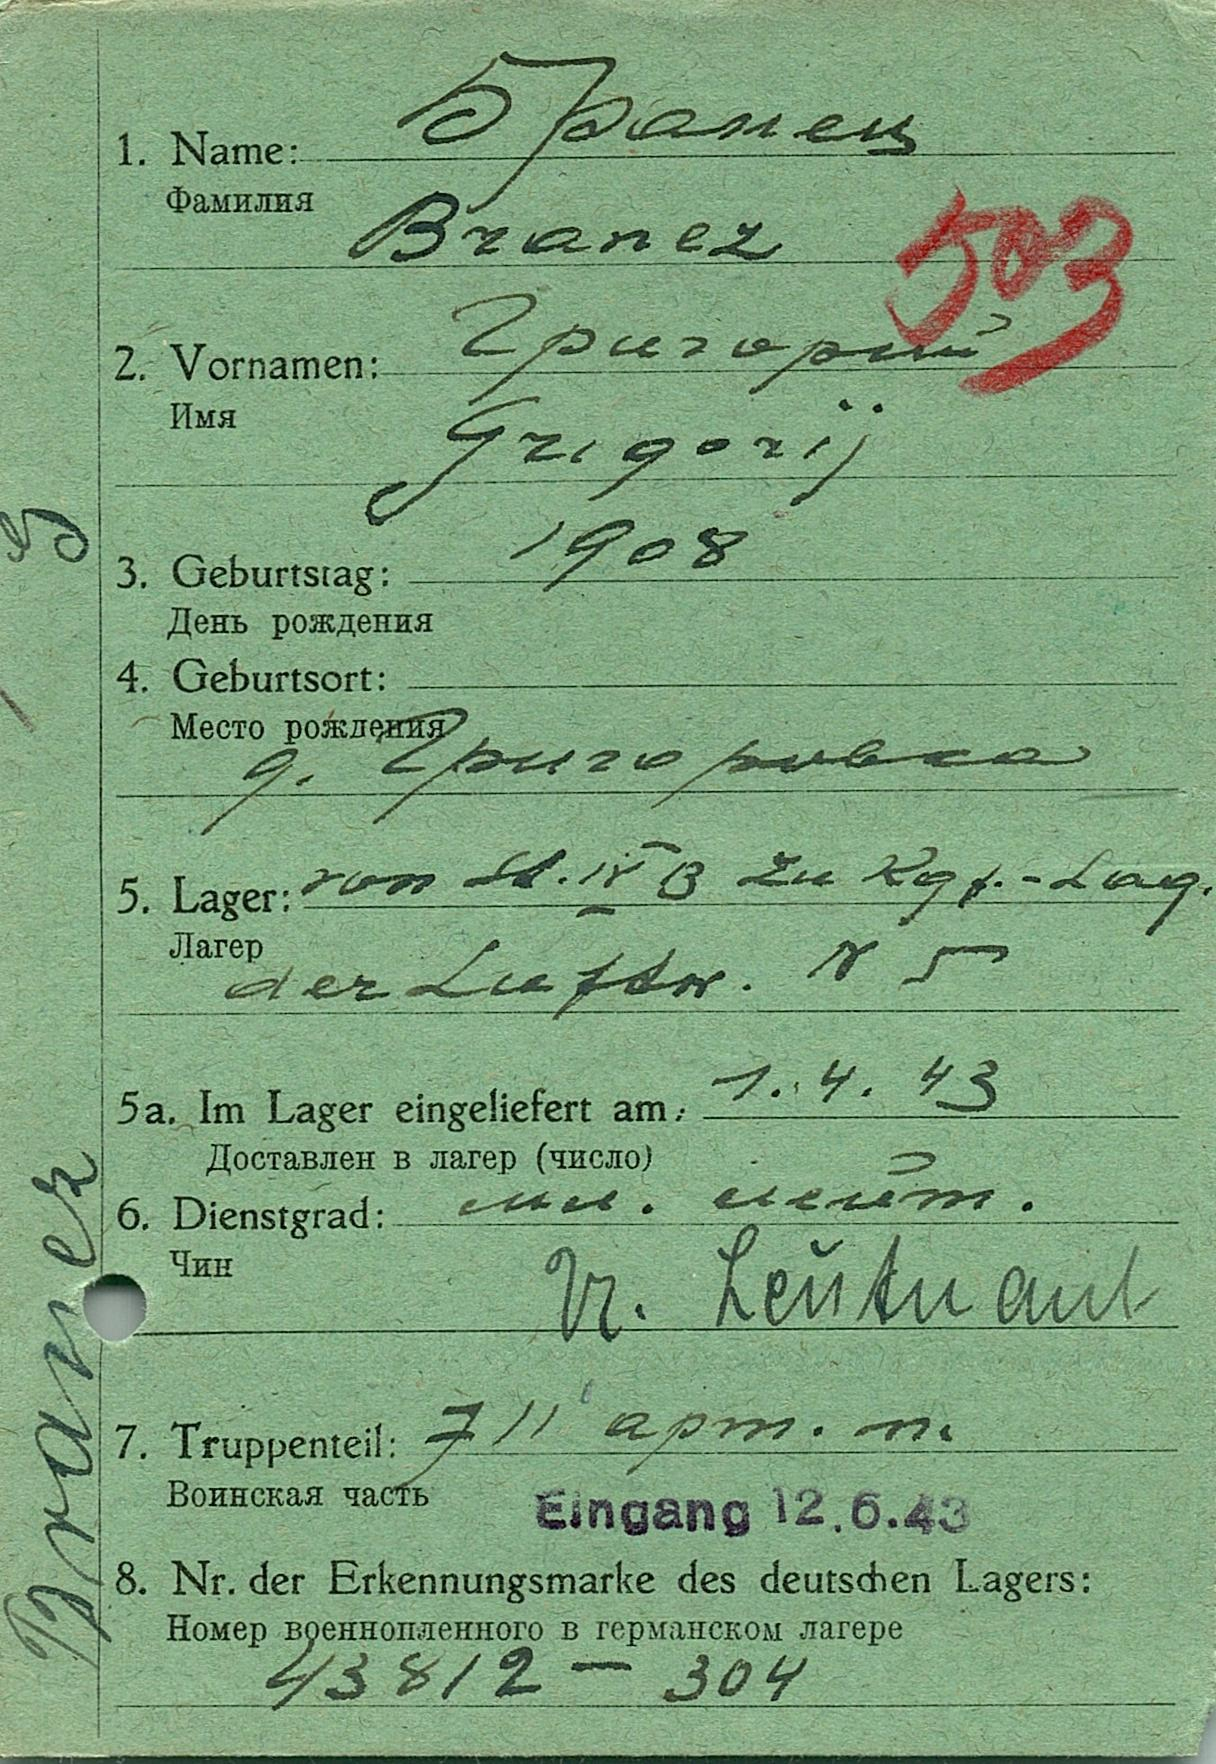 Бранец
1. Name:
Фамилия
Branez
503
Григорий
2. Vornamen:
Имя
Grigorij
1908
3. Geburtstag:
День рождения
4. Geburtsort:
Место рождения
д. Григоровка
5. Lager: von St. IV B zu Kgf.-Lag.
Лагер
der Luftw. N 5
5a. Im Lager eingeliefert am: 1.4.43
Доставлен в лагер (число)
6. Dienstgrad: мл. лейт.
Чин
Leutnant
7. Truppenteil: 711 арт. п.
Воинская часть
Eingang 12.6.43
8. Nr. der Erkennungsmarke des deutschen Lagers:
Номер военнопленного в германском лагере
43812 — 304
Branez